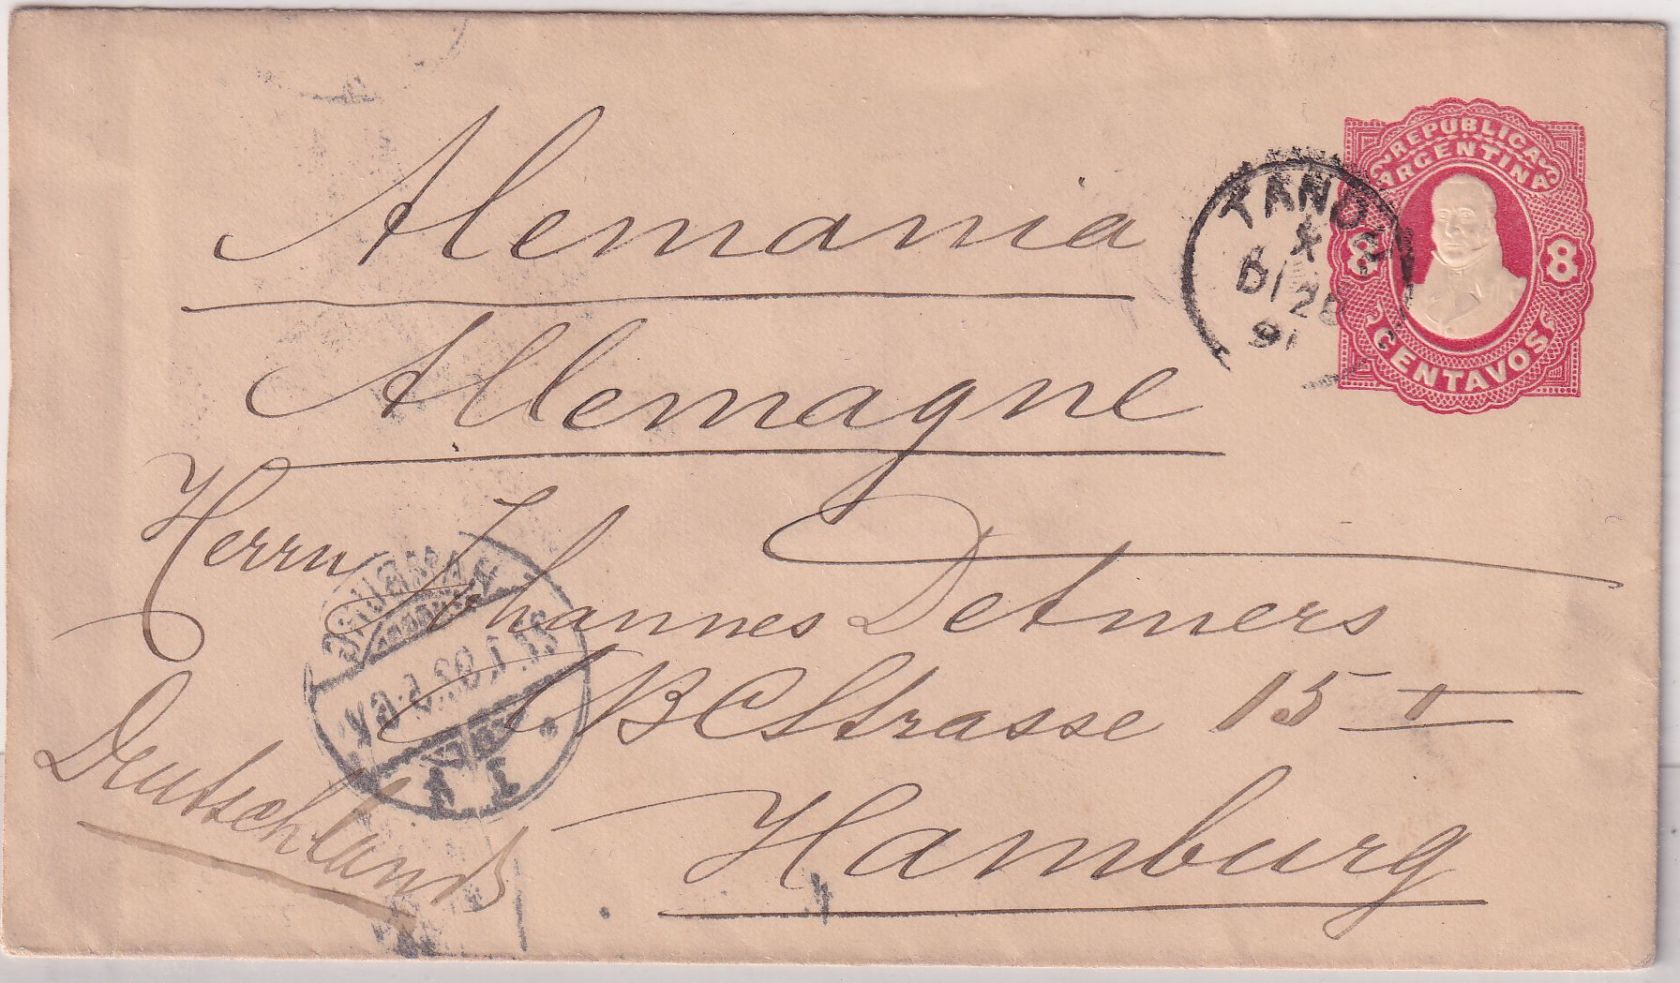 REPÚBLICA
ARGENTINA
8 8
CENTAVOS
DI 26
91
Alemania
Allemagne
Herrn Johannes Detmers
ABCStrasse 15 I
Hamburg
Deutschland
HAMBURG